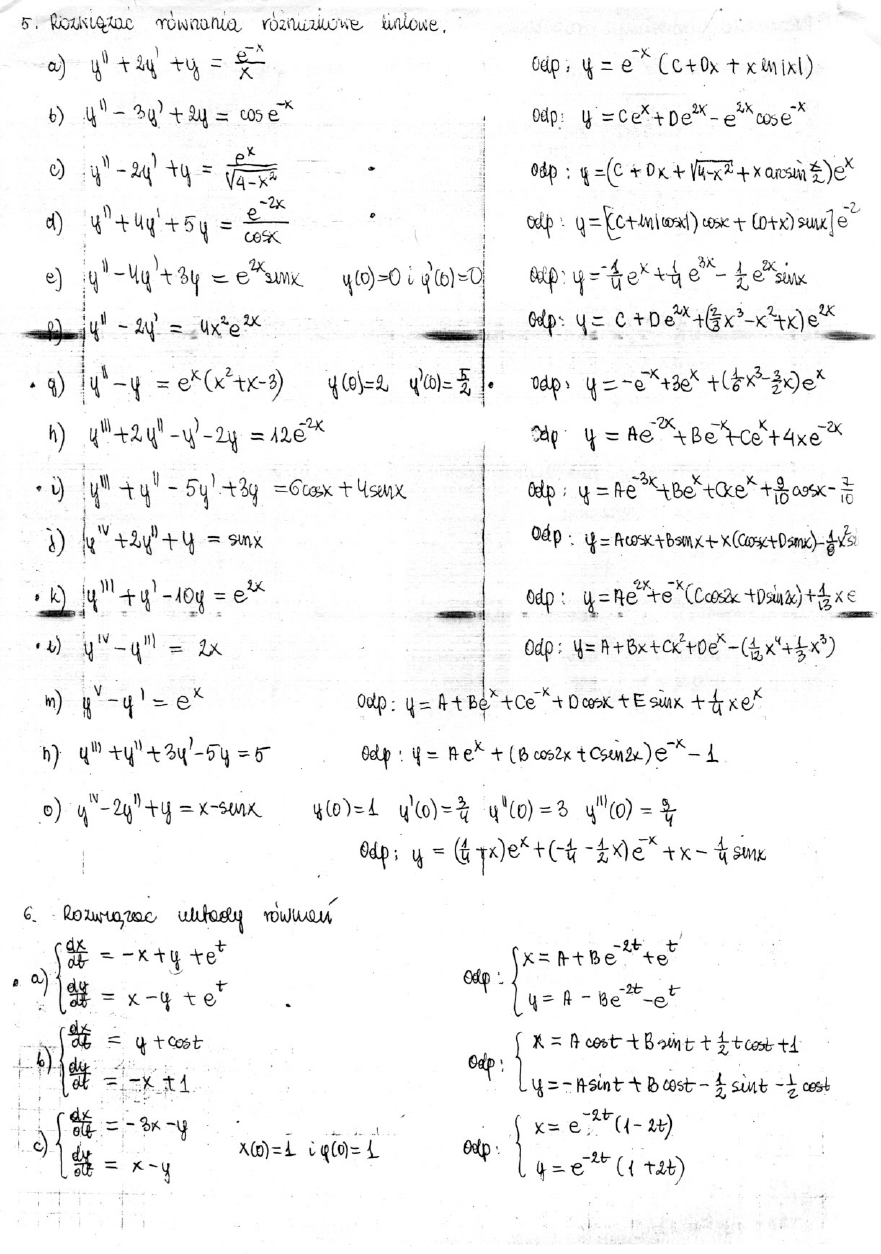 5. Rozwiązać równania różniczkowe liniowe.
a) y'' + 2y' + y = e^{-x}/x Odp: y = e^{-x} (C + Dx + x ln|x|)
b) y'' - 3y' + 2y = cos e^{-x} Odp: y = Ce^{x} + De^{2x} - e^{2x} cos e^{-x}
c) y'' - 2y' + y = e^{x}/√(4-x²) Odp: y = (C + Dx + √(4-x²) + x arcsin x/2) e^{x}
d) y'' + 4y' + 5y = e^{-2x}/cosx Odp: y = [(C + ln|cosx|) cosx + (D+x) sinx] e^{-2
e) y'' - 4y' + 3y = e^{2x} sinx y(0)=0 i y'(0)=0 Odp: y = -1/4 e^{x} + 1/4 e^{3x} - 1/2 e^{2x} sinx
f) y'' - 2y' = 4x²e^{2x} Odp: y = C + De^{2x} + (2/3 x³ - x² + x) e^{2x}
g) y'' - y = e^{x}(x² + x - 3) y(0)=2 y'(0)=5/2 Odp: y = -e^{-x} + 3e^{x} + (1/6 x³ - 3/2 x) e^{x}
h) y''' + 2y'' - y' - 2y = 12e^{-2x} Odp y = Ae^{-2x} + Be^{-x} + Ce^{x} + 4xe^{-2x}
i) y''' + y'' - 5y' + 3y = 6cosx + 4sinx Odp: y = Ae^{-3x} + Be^{x} + Cxe^{x} + 9/10 cosx - 7/10
j) y^{IV} + 2y'' + y = sinx Odp: y = Acosx + Bsinx + x(Ccosx + Dsinx) - 1/8 x² si
k) y''' + y' - 10y = e^{2x} Odp: y = Ae^{2x} + e^{-x}(Ccos2x + Dsin2x) + 1/13 x e
l) y^{IV} - y''' = 2x Odp: y = A + Bx + Cx² + De^{x} - (1/12 x⁴ + 1/3 x³)
m) y^{V} - y' = e^{x} Odp: y = A + Be^{x} + Ce^{-x} + Dcosx + E sinx + 1/4 xe^{x}
n) y''' + y'' + 3y' - 5y = 5 Odp: y = Ae^{x} + (B cos2x + Csin2x) e^{-x} - 1
o) y^{IV} - 2y'' + y = x - sinx y(0)=1 y'(0)=3/4 y''(0)=3 y'''(0)=9/4
Odp: y = (1/4 + x)e^{x} + (-1/4 - 1/2 x)e^{-x} + x - 1/4 sinx
6. Rozwiązać układy równań
a) { dx/dt = -x + y + e^{t} Odp: { x = A + Be^{-2t} + e^{t}
dy/dt = x - y + e^{t} y = A - Be^{-2t} - e^{t}
b) { dx/dt = y + cost Odp: { x = A cost + B sint + 1/2 t cost + 1
dy/dt = -x + 1 y = -A sint + B cost - 1/2 sint - 1/2 cost
c) { dx/dt = -3x - y x(0)=1 i y(0)=1 Odp: { x = e^{-2t} (1 - 2t)
dy/dt = x - y y = e^{-2t} (1 + 2t)